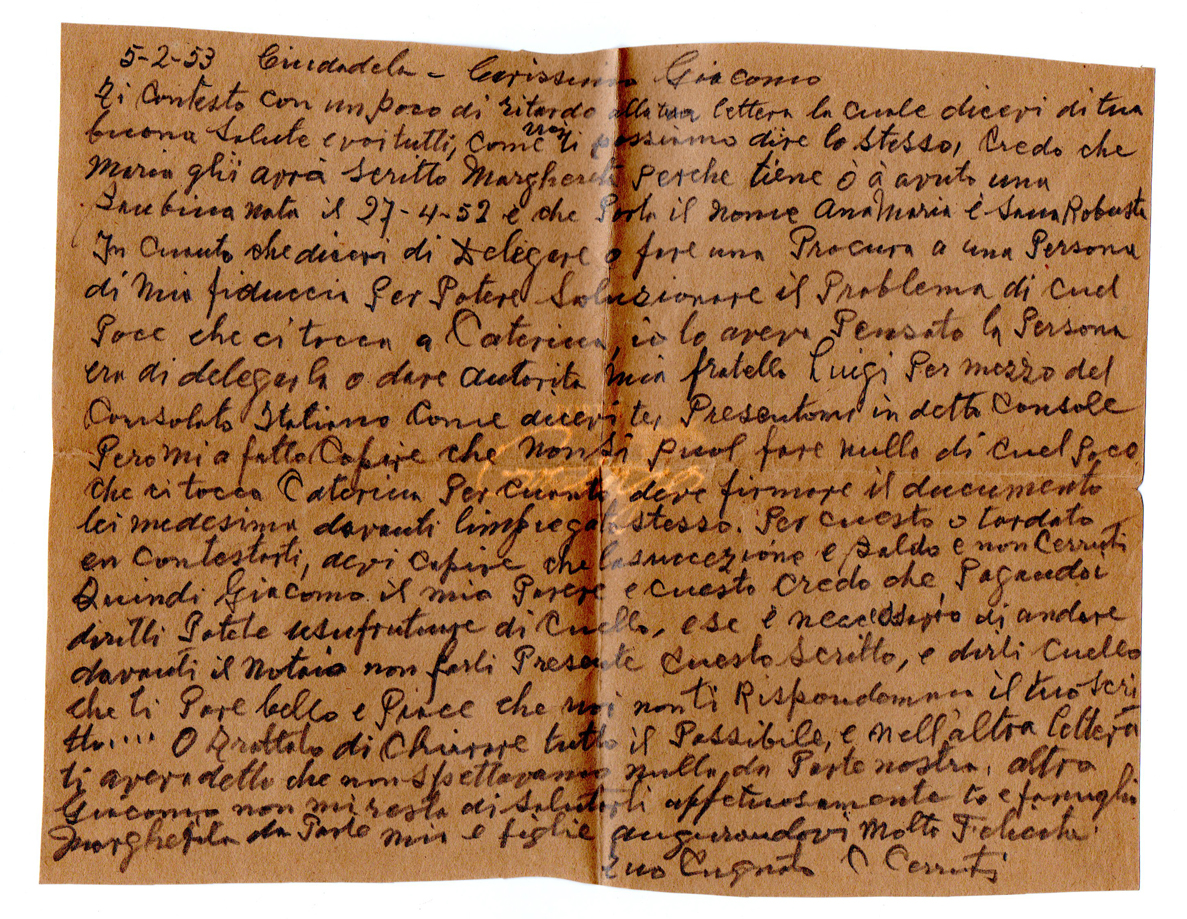 5-2-53 Ciudadela - Carissimo Giacomo
Ti Contesto con un poco di ritardo alla tua lettera la cuale dicevi di tua
buona Salute e voi tutti, come noi ti possiamo dire lo stesso, Credo che
Maria ghii aprà scritto Margherita perche tiene ò à avuto una
Bambina nata il 27-4-52 e che Porta il nome AnaMaria è Sana Robusta
In Cuanto che dicevi di Delegare o fare una Procura a una Persona
di Mia fiduccia Per Potere Soluzionare il Problema di cuel
Poce che ci tocca a Caterina, io lo aveva Pensato la Persona
era di delegarla o dare autorita Mia fratello Luigi Per mezzo del
Consolato Italiano Come dicevi te, Presentomi in detto Console
Pero mi a fatto Capire che non si puol fare nullo di cuel poco
che ci tocca Caterina Per cuanto deve firmare il ducumento
lei medesima davanti limpiegato stesso. Per cuesto o tardato
en Contestarti, devi Capire che la succezione e Baldo e non Cerruti
Quindi Giacomo il mio Parere e cuesto Credo che Pagando i
diritti Potete usufrutuare di Cuello, e se è necessario di andare
davanti il Notaio non farli Presente Cuesto Scritto, e dirli Cuello
che ti Pare bello e Piace che noi non ti Rispondiamo il tuo scri
tto.... O Trattato di Chiarare tutto il Possibile, e nell'altra lettera
ti avera detto che non spettavamo nulla da Parte nostra, altro
Giacomo non mi resta di Salutarti affetuosamente to e famiglia
Margherita da Parte mia e figlie augurandovi Molta Felicita.
Tuo Cugnato C Cerruti